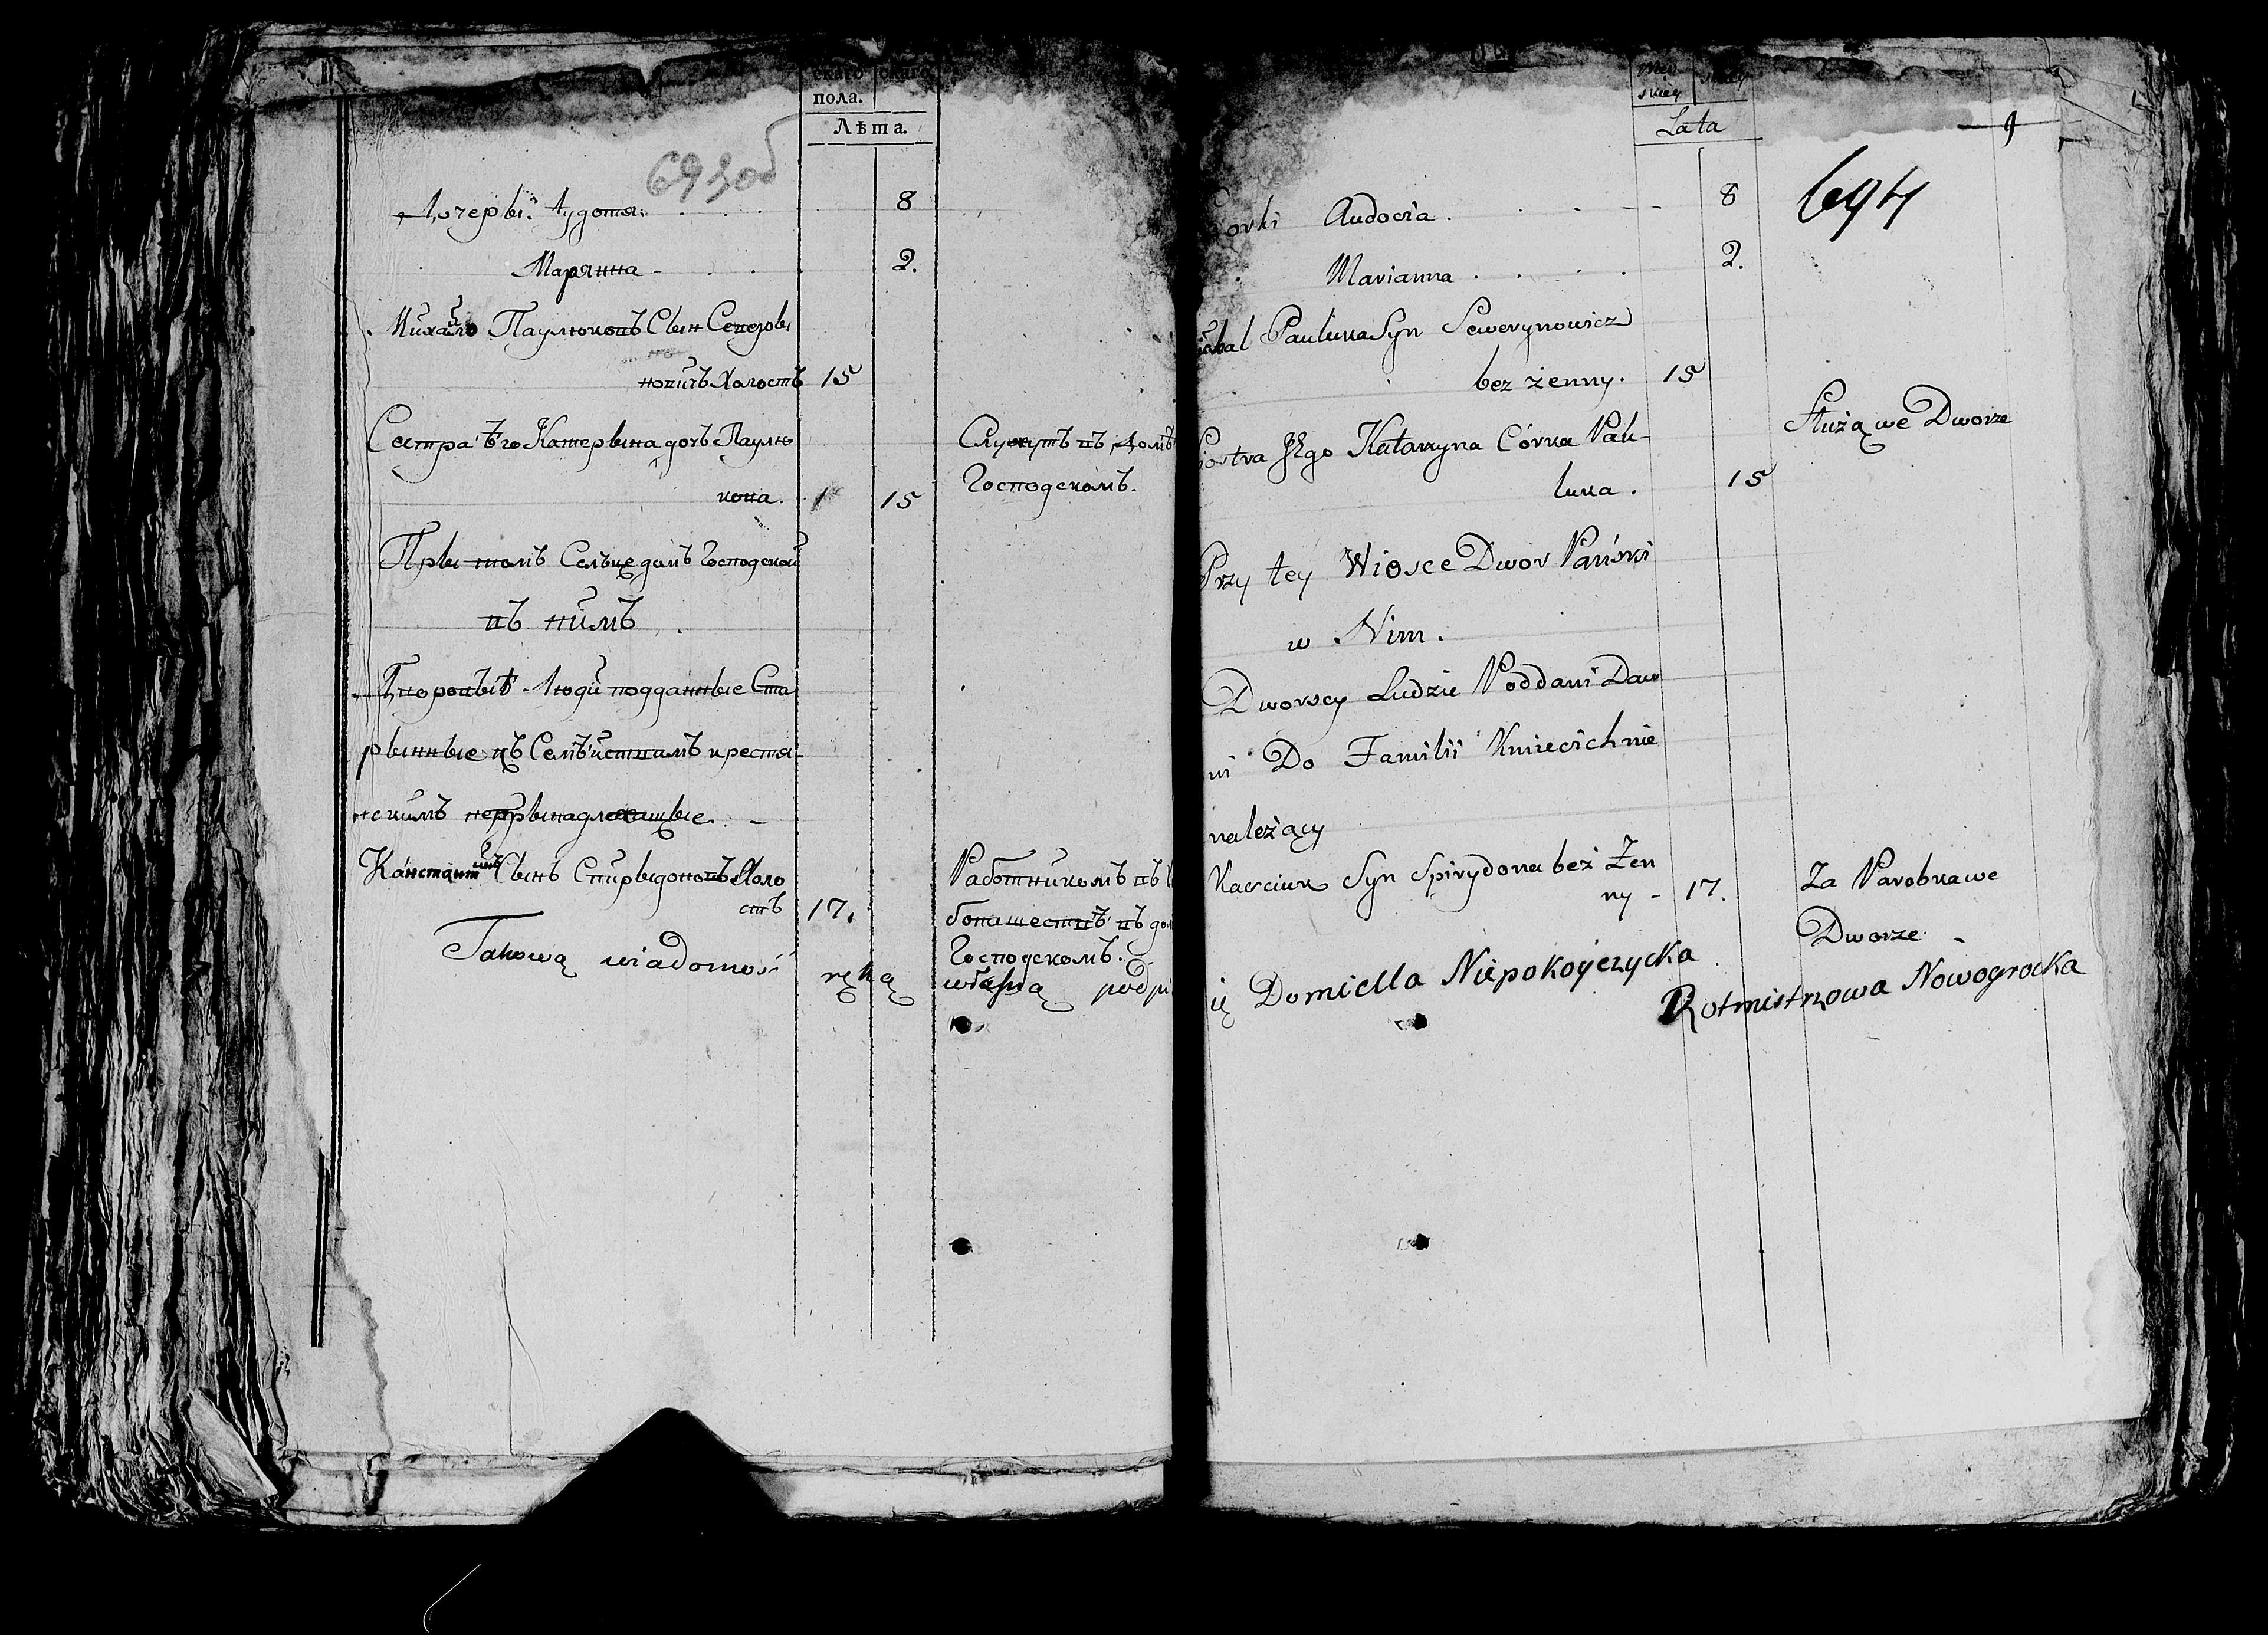 скаго скаго
пола.
Лѣта.
693об
Дочеры: Аудотя. 8
Марянна 2.
Михайло Паулюковъ Сын Северы
новичъ Холостъ 15
Сестра Ѣго Катерына дочъ Паулю
кова. 15
Служутъ въ Домѣ
Господскомъ.
Пры томъ Селъце домъ Господский
въ нимъ
Дворовые Люди подданные Ста
рынные къ Семѣйствамъ крестя-
нскимъ непрынадлежащые.
Канстантинъ Сынъ Спирыдоновъ Холо
стъ 17.
Работникомъ въ
Господскомъ.
Takową wiadomość ręką własną podpi
Lata
694
Audocia 8
Marianna 2.
Pauluka Syn Sewerynowicz
bez żenny. 15
Siostra Jego Katarzyna Córka Pau-
luka. 15
Służą we Dworze
Przy tey Wiosce Dwor Pański
w Nim.
Dworscy Ludzie Poddani Daw
ni Do Familii Kmiecich nie
należący
Kasciuk Syn Spirydona bez Żen
ny - 17.
Za Parobka we
Dworze
ię Domicella Niepokoyczycka
Rotmistrzowa Nowogrocka